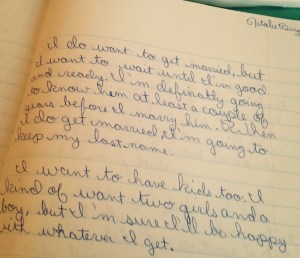 I do want to get married, but
I want to wait until I'm good
and ready. I'm definatly going
to know them at least a couple of
years before I marry him. When
I do get married, I'm going to
keep my last name.
I want to have kids too. I
kind of want two girls and a
boy, but I'm sure I'll be happy
with whatever I get.